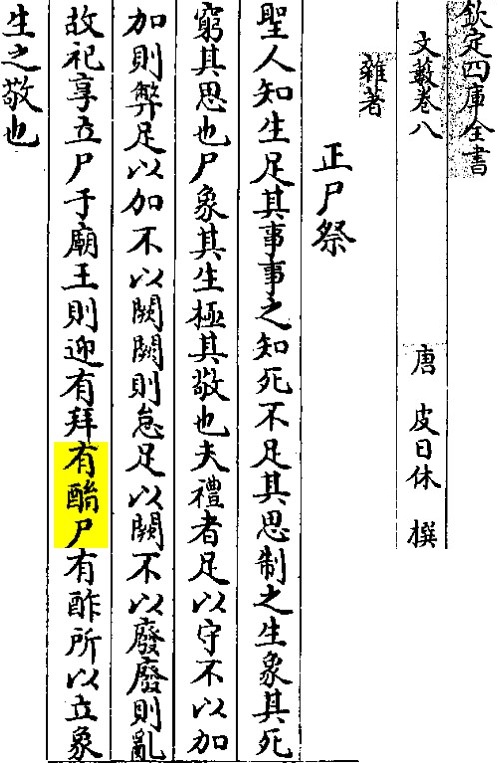 欽定四庫全書
文藪卷八 唐 皮日休 撰
雜著
正尸祭
聖人知生足其事事之知死不足其思制之生象其死
窮其思也尸象其生極其敬也夫禮者足以守不以加
加則弊足以加不以闕闕則怠足以闕不以廢廢則亂
故祀享立尸于廟王則迎有拜有酳尸有酢所以立象
生之敬也